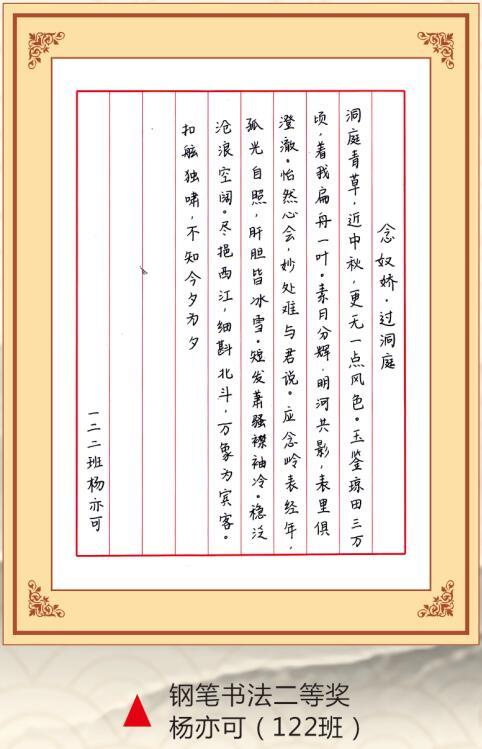 念奴娇·过洞庭
洞庭青草，近中秋，更无一点风色。玉鉴琼田三万
顷，着我扁舟一叶。素月分辉，明河共影，表里俱
澄澈。怡然心会，妙处难与君说。应念岭表经年，
孤光自照，肝胆皆冰雪。短发萧骚襟袖冷。稳泛
沧浪空阔。尽挹西江，细斟北斗，万象为宾客。
扣舷独啸，不知今夕为夕
一二二班杨亦可
钢笔书法二等奖
杨亦可（122班）